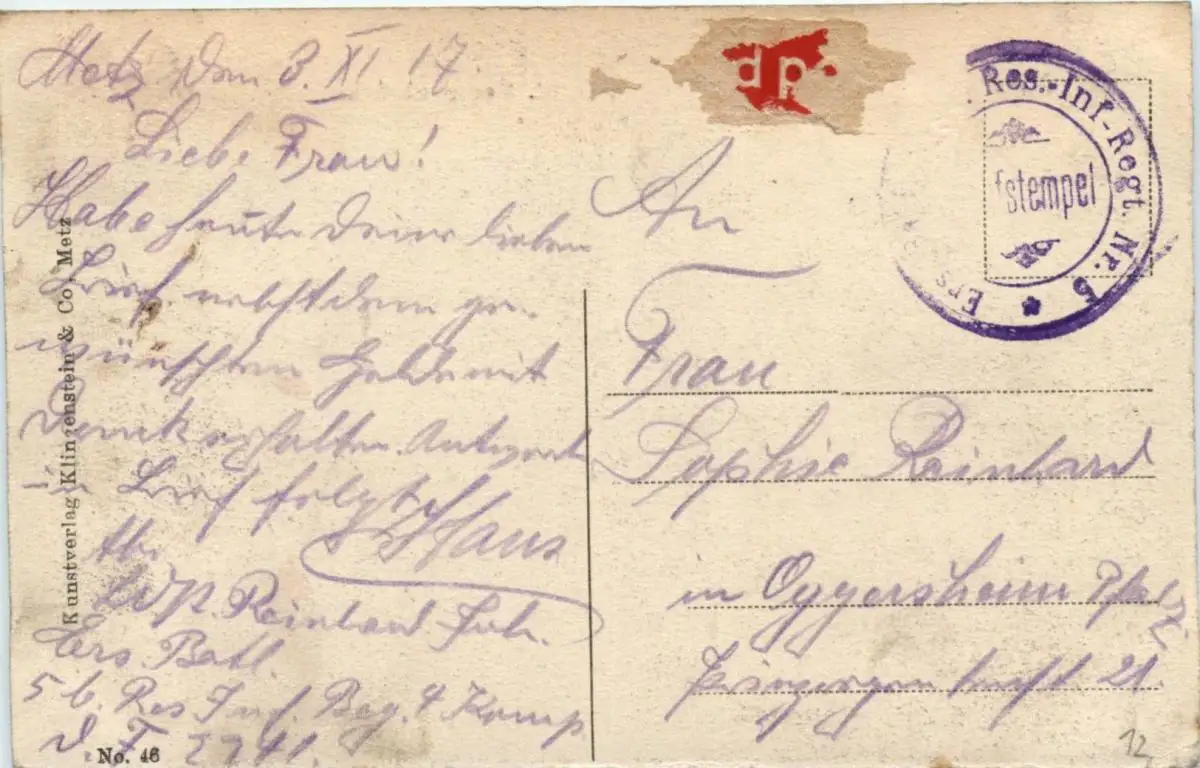 Metz den 3. XI. 17.
Liebe Frau!
Habe heute deinen lieben
Brief nebst dem ge-
wünschten Gelde mit
Dank erhalten. Antwort
Brief folgt
Hans
Abs.
Reinhard
Ers. Batl.
5 b. Res. Inf. Reg. 4 Komp
No. 46
Kunstverlag Klingenstein & Co, Metz
dp.
Res.-Inf.-Regt. Nr. 5 * Ers
fstempel
An
Frau
Sophie Reinhard
in Oggersheim Pfalz
21.
12